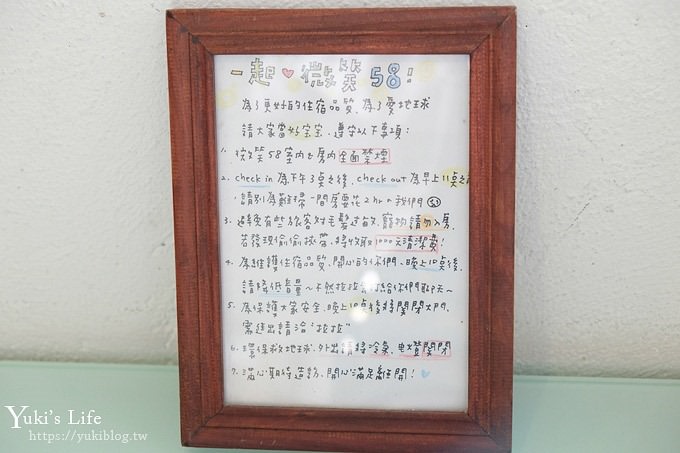 一起♥微笑58!
為了更好的住宿品質、為了愛地球
請大家當好宝宝,遵守以下事項:
1. 微笑58室內之房內全面禁煙
2. check in 為下午3點之後, check out 為早上11點之前
請別為難打掃一間房要花2hr的我們
3. 避免有些旅客對毛髮過敏,寵物請勿入房,
若發現偷偷挾帶,將收取1000元清潔費!
4. 為維護住宿品質、開心的你們,晚上10點後,
請降低音量~不然拉拉會來找你們聊天~
5. 為保護大家安全,晚上10點後將關閉大門,
需進出請洽"拉拉"
6. 環保救地球,外出請將冷氣、電燈關閉
7. 滿心期待造訪、開心滿足離開!
Yuki's Life
https://yukiblog.tw